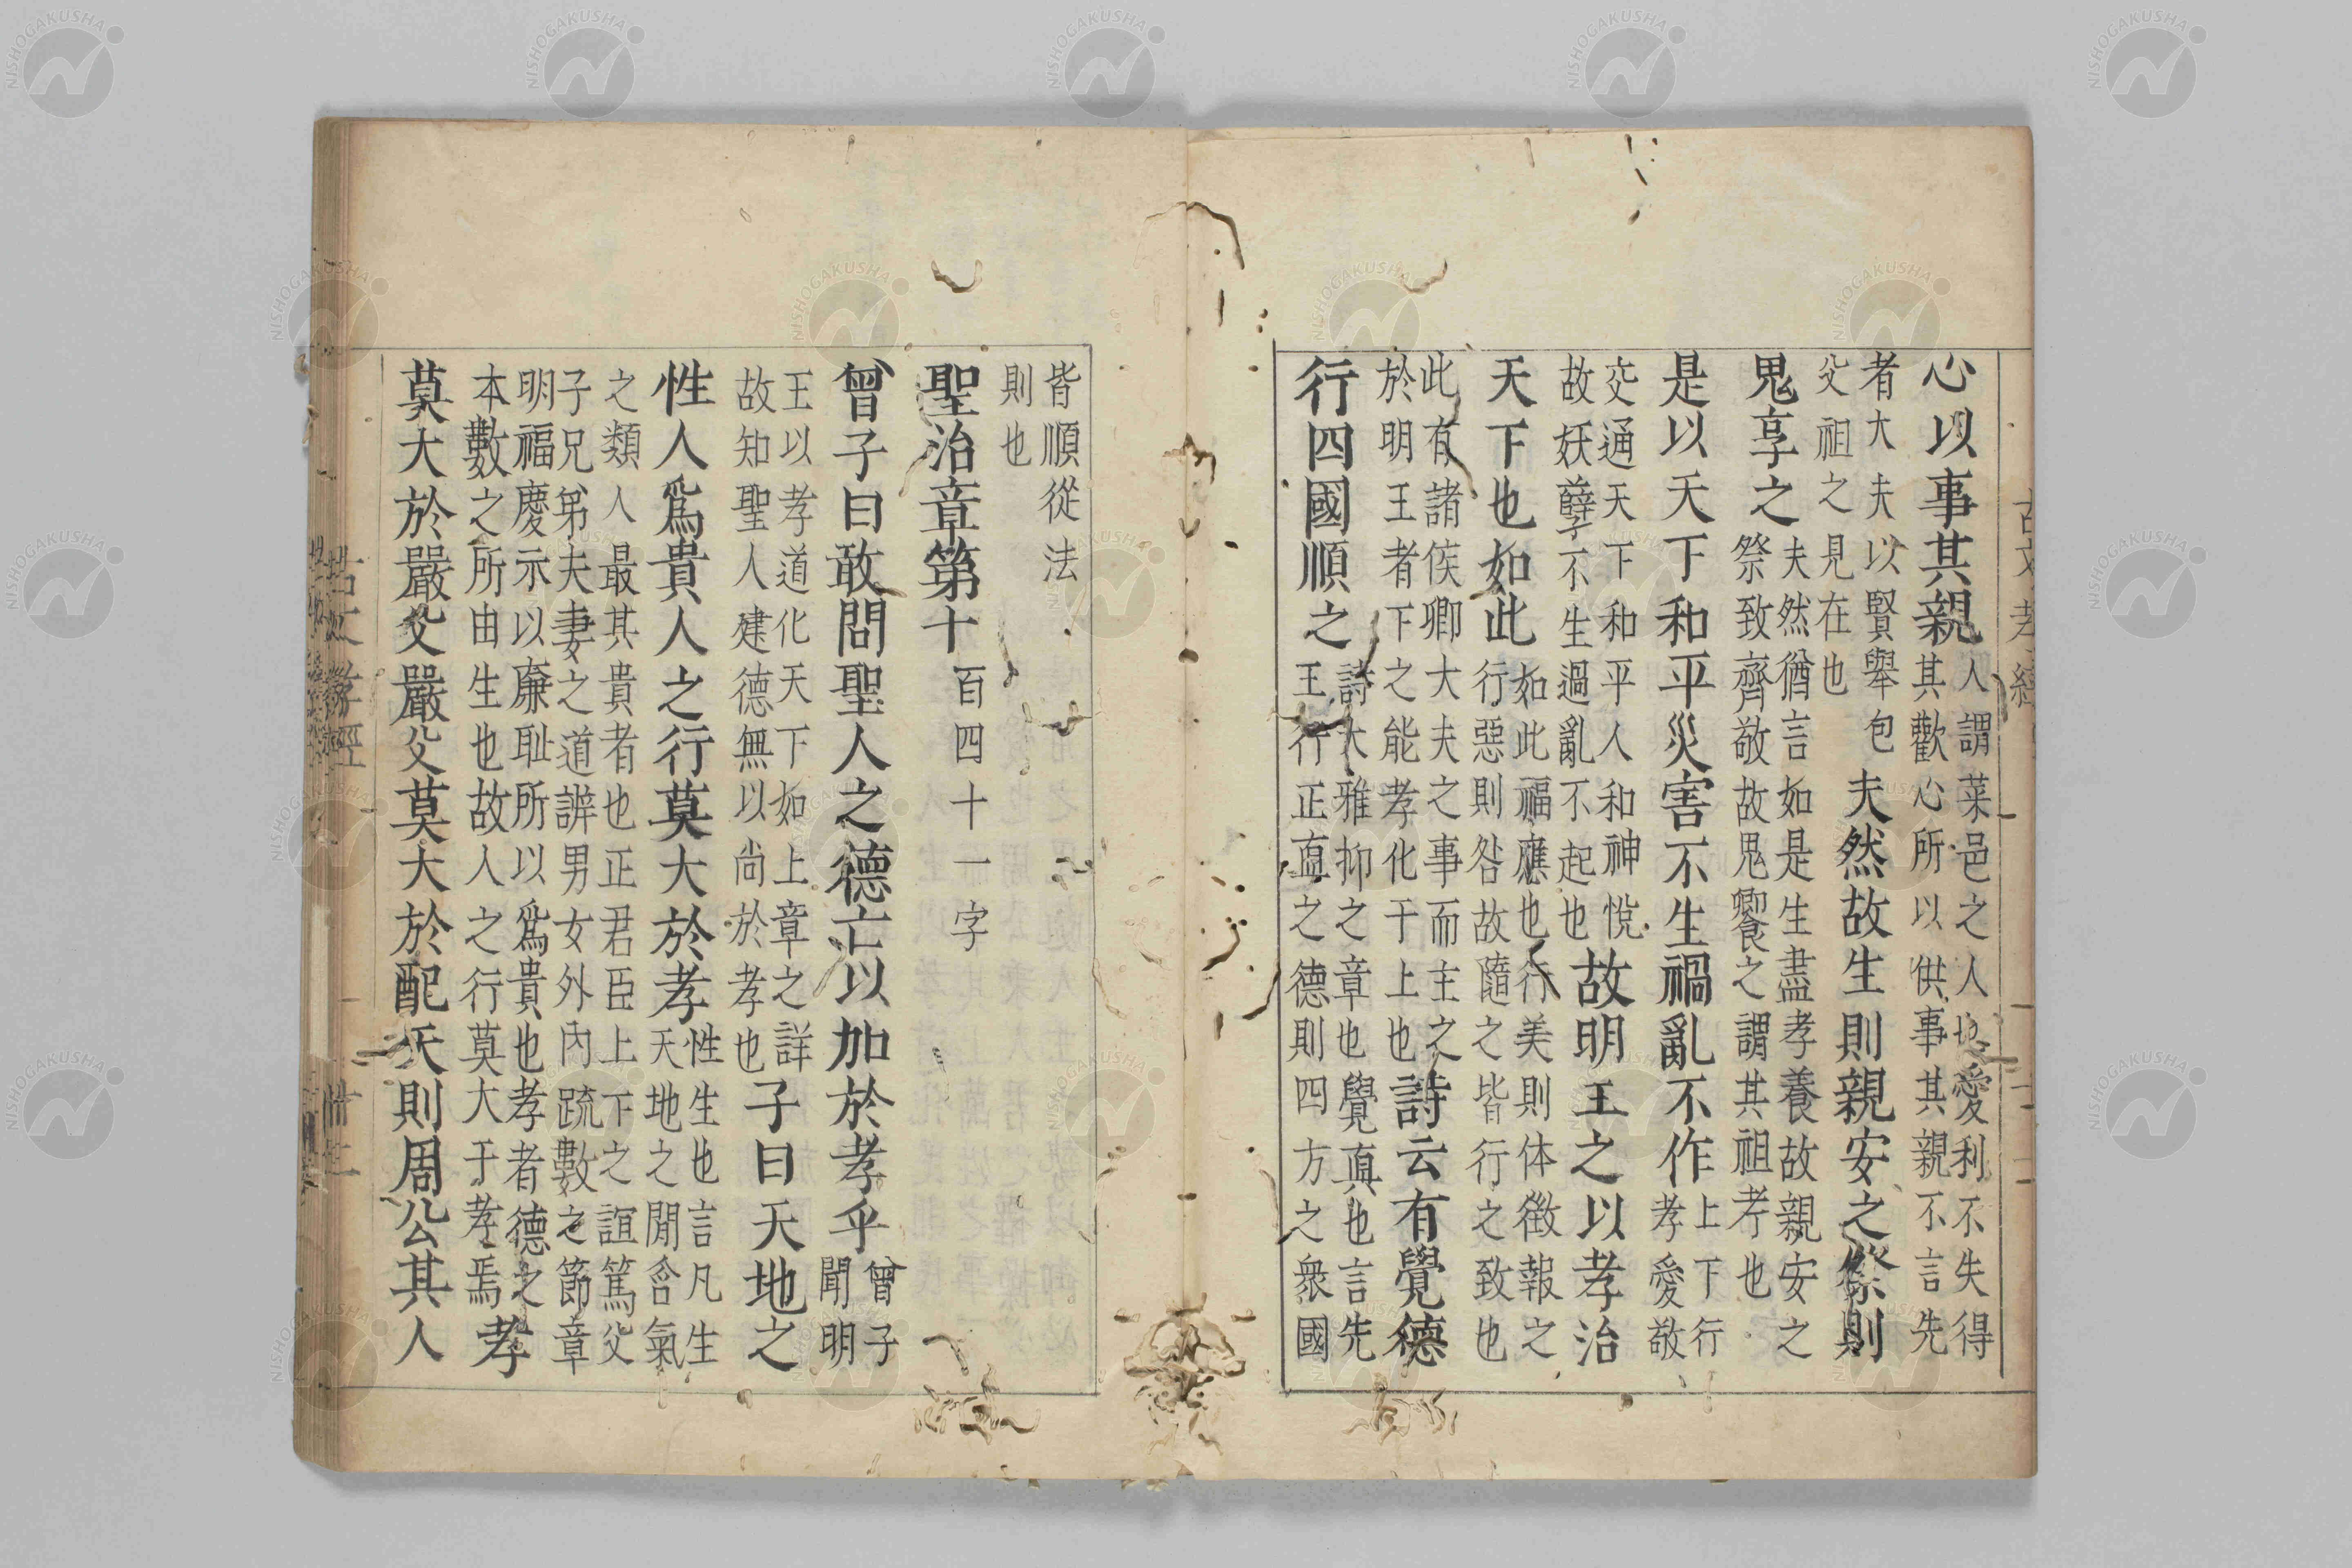 心以事其親
人謂菜邑之人人也愛利不失得
其歡心所以供事其親不言先
者大夫以賢舉包
父祖之見在也
夫然故生則親安之祭則
鬼享之
夫然猶言如是生盡孝養故親安之
祭致齊敬故鬼饗之謂其祖考也
是以天下和平災害不生禍亂不作
上下行
孝愛敬
交通天下和平人和神悅
故妖孽不生過亂不起也
故明王之以孝治
天下也如此
如此福應也行美則体徵報之
行惡則咎故隨之皆行之致也
此有諸侯卿大夫之事而主之
於明王者下之能孝化于上也
詩云有覺德
行四國順之
詩大雅抑之章也覺直也言先
王行正直之德則四方之衆國
皆順從法
則也
聖治章第十
百四十一字
曾子曰敢問聖人之德亡以加於孝乎
曾子
聞明
王以孝道化天下如上章之詳
故知聖人建德無以尚於孝也
子曰天地之
性人爲貴人之行莫大於孝
性生也言凡生
天地之閒含氣
之類人最其貴者也正君臣上下之誼篤父
子兄弟夫妻之道辨男女外內疏數之節章
明福慶示以廉耻所以爲貴也孝者德之
本數之所由生也故人之行莫大于孝焉
孝
莫大於嚴父嚴父莫大於配天則周公其人
古文孝經
NISHOGAKUSHA